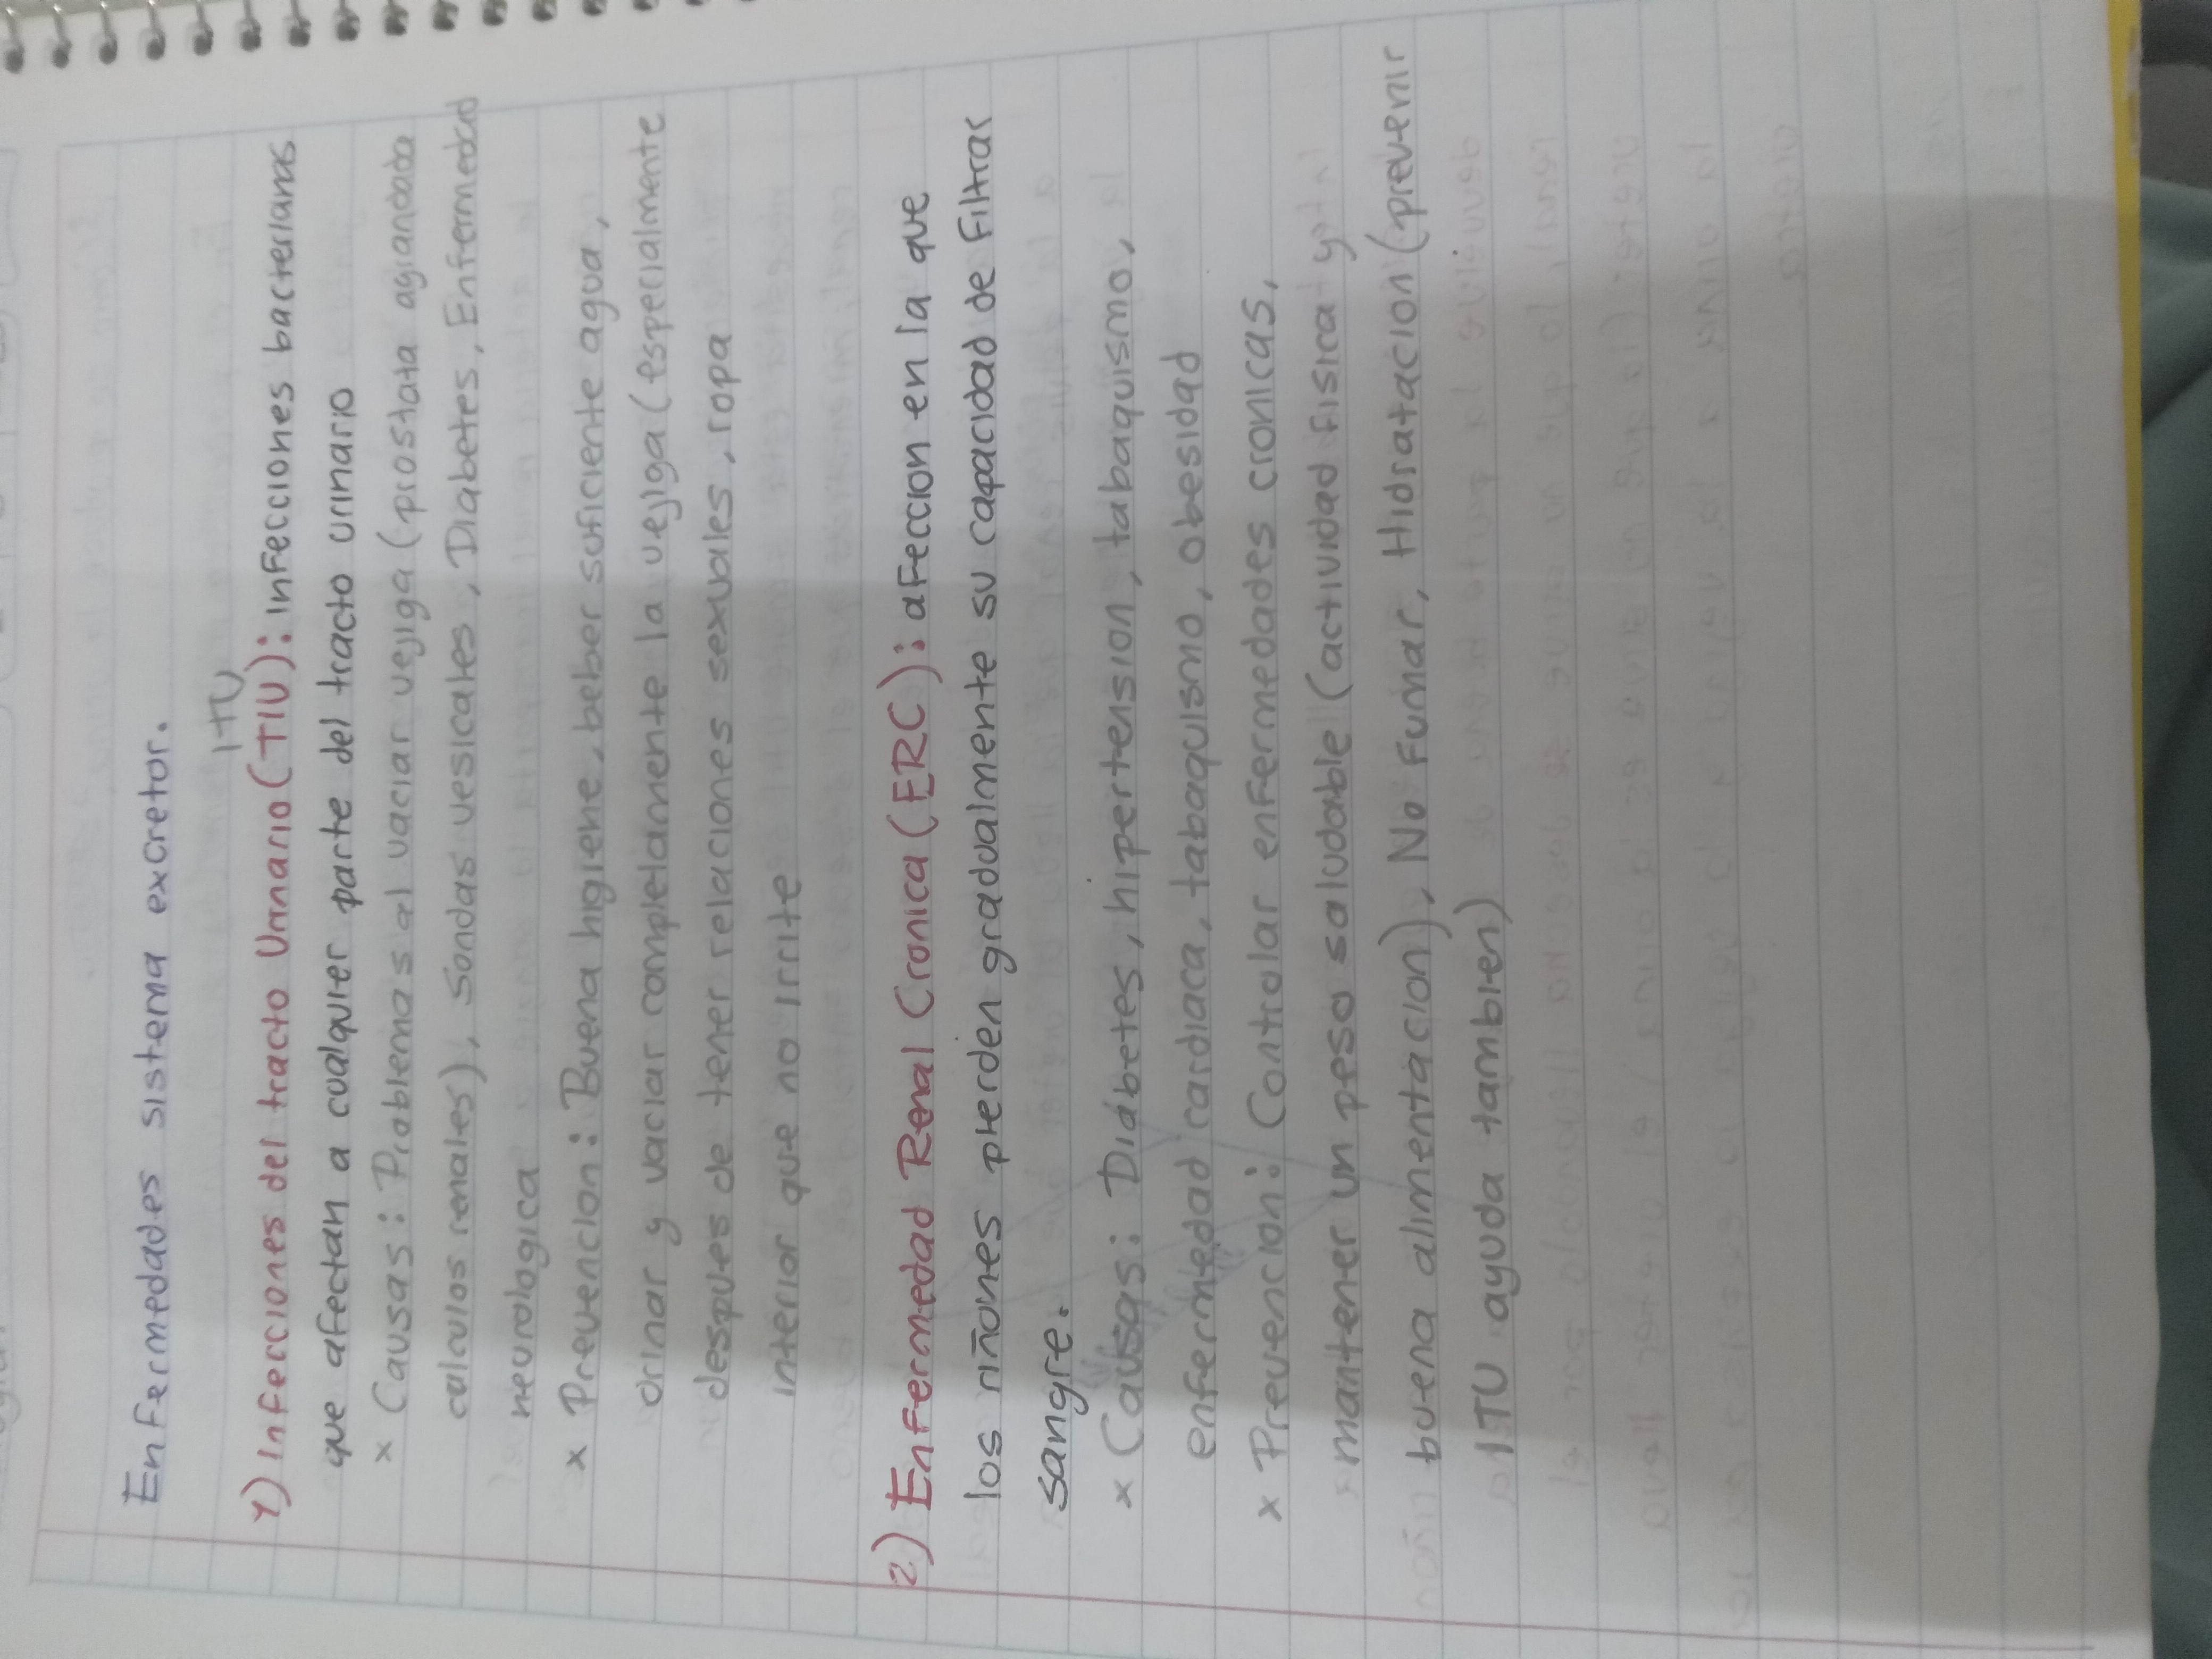 Enfermedades sistema excretor.
ITU
1) Infecciones del tracto Urinario (TIU): infecciones bacterianas
que afectan a cualquier parte del tracto urinario
x Causas: Problemas al vaciar vejiga (prostata agrandada
calculos renales), Sondas vesicales, Diabetes, Enfermedad
neurologica
x Prevencion: Buena higiene, beber suficiente agua,
orinar y vaciar completamente la vejiga (especialmente
despues de tener relaciones sexuales, ropa
interior que no irrite
2) Enfermedad Renal Cronica (ERC): afeccion en la que
los riñones pierden gradualmente su capacidad de filtrar
sangre.
x Causas: Diabetes, hipertension, tabaquismo,
enfermedad cardiaca, tabaquismo, obesidad
x Prevencion: Controlar enfermedades cronicas,
mantener un peso saludable (actividad fisica y
buena alimentacion), No Fumar, Hidratacion (prevenir
ITU ayuda tambien)